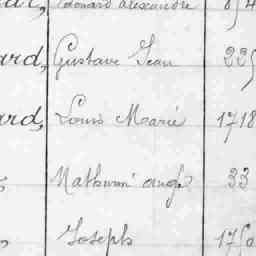 Edouard alexandre
ard, Gustave Jean
ard, Louis Marie 1718
Mathurin ange 33
Joseph